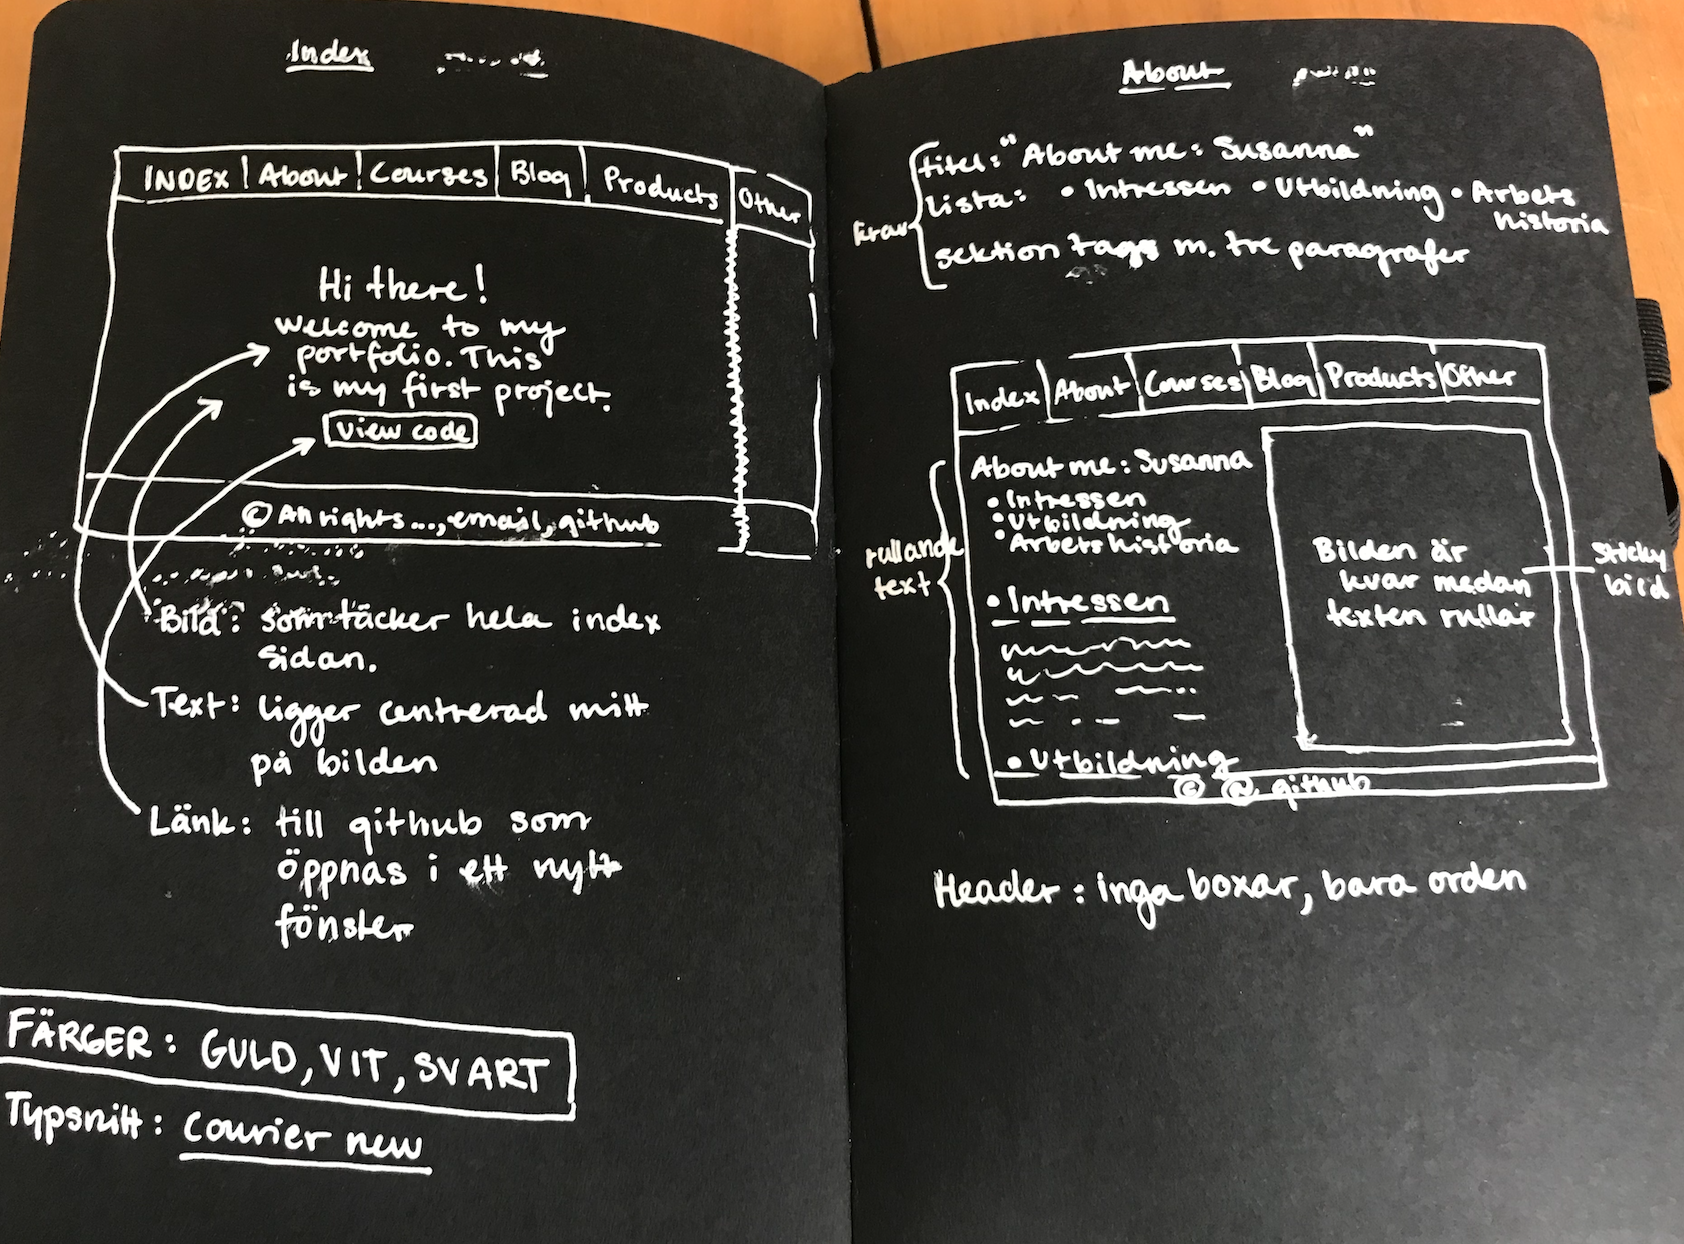 Index
INDEX About Courses Blog Products Other
Hi there!
Welcome to my
portfolio. This
is my first project.
View code
© All rights..., email, github
Bild: som täcker hela index
sidan.
Text: ligger centrerad mitt
på bilden
Länk: till github som
öppnas i ett nytt
fönster
FÄRGER: GULD, VIT, SVART
Typsnitt: Courier new
About
krav
titel: "About me: Susanna"
Lista: • Intressen • Utbildning • Arbets
historia
sektion tags m. tre paragrafer
Index About Courses Blog Products Other
About me: Susanna
• Intressen
• Utbildning
• Arbetshistoria
rullande
text
• Intressen
• Utbildning
Bilden är
kvar medan
texten rullar
Sticky
bild
© @ github
Header: inga boxar, bara orden